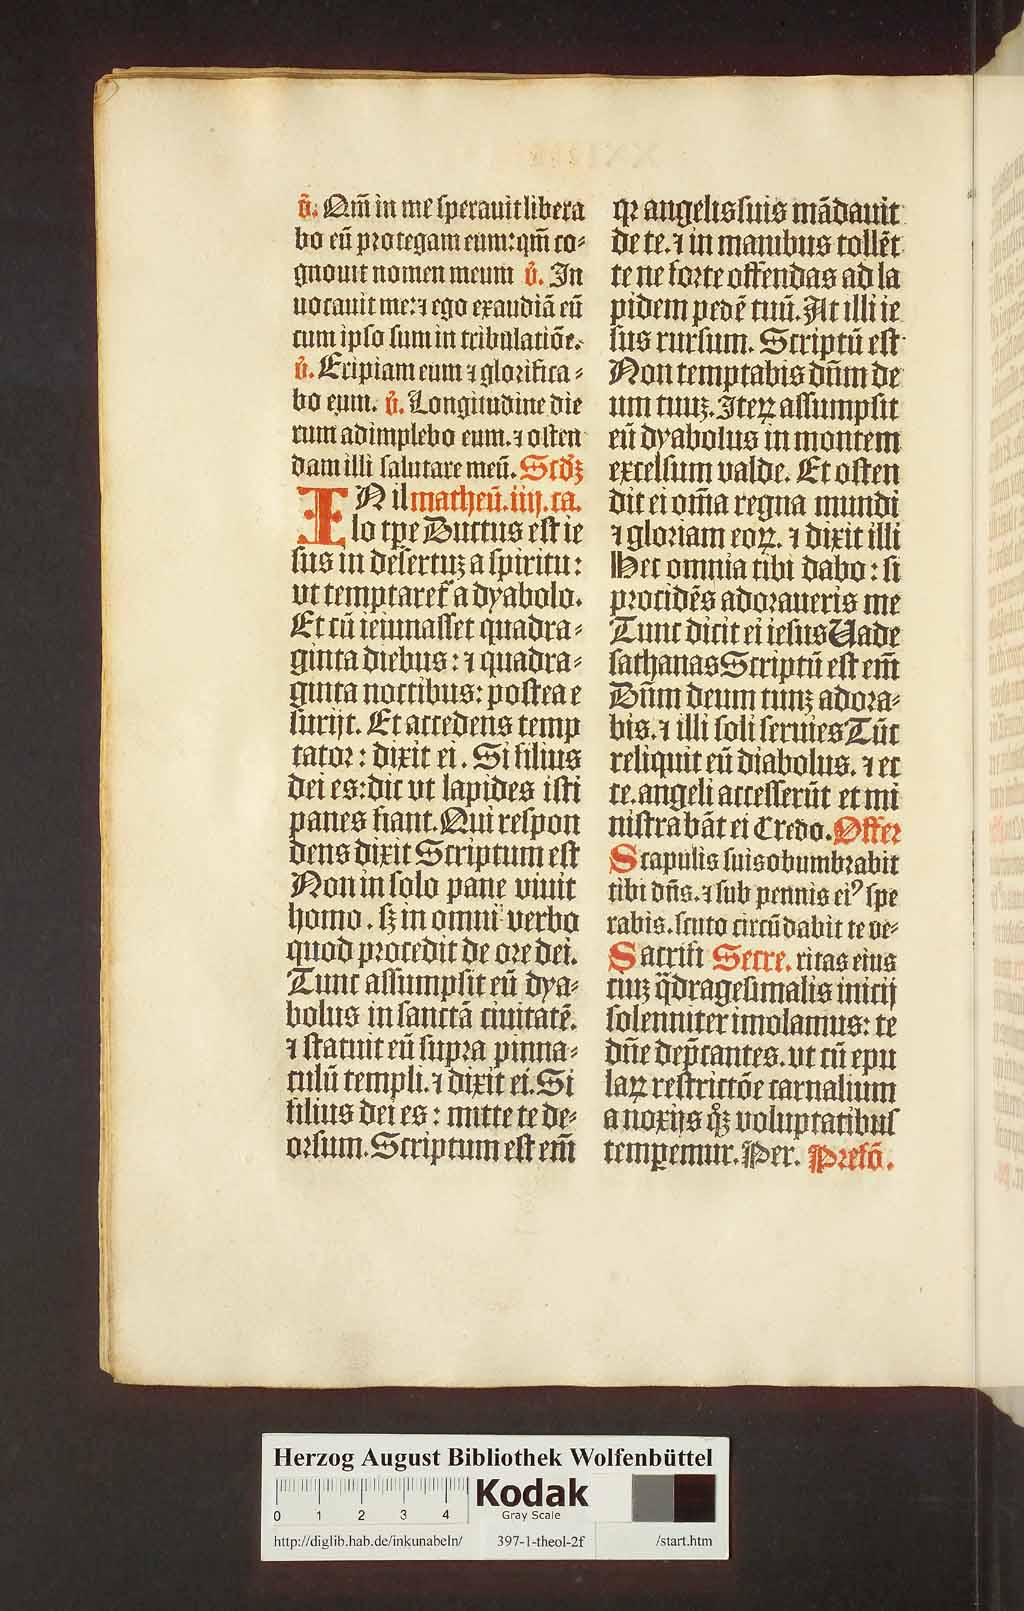 v̄. Qm̄ in me sperauit libera
bo eū protegam eum: qm̄ co⸗
gnouit nomen meum v̄. In
uocauit me: ⁊ ego exaudiā eū
cum ipso sum in tribulatiōe.
v̄. Eripiam eum ⁊ glorifica⸗
bo eum. v̄. Longitudine die
rum adimplebo eum. ⁊ osten
dam illi salutare meū. Scd̄ꝫ
IN il matheū. iiij. ca.
lo tpe Ductus est ie
sus in desertuꝫ a spiritu:
vt temptaret᷑ a dyabolo.
Et cū ieiunasset quadra⸗
ginta diebus: ⁊ quadra⸗
ginta noctibus: postea e
surijt. Et accedens temp
tator: dixit ei. Si filius
dei es: dic vt lapides isti
panes fiant. Qui respon
dens dixit Scriptum est
Non in solo pane viuit
homo. sꝫ in omni verbo
quod procedit de ore dei.
Tunc assumpsit eū dya⸗
bolus in sanctā ciuitatē.
⁊ statuit eū supra pinna⸗
culū templi. ⁊ dixit ei. Si
filius dei es: mitte te de⸗
orsum. Scriptum est em̄
qꝛ angelis suis mādauit
de te. ⁊ in manibus tollēt
te ne forte offendas ad la
pidem pedē tuū. At illi ie
sus rursum. Scriptū est
Non temptabis dn̄m de
um tuuꝫ. Iteꝝ assumpsit
eū dyabolus in montem
excelsum valde. Et osten
dit ei om̄ia regna mundi
⁊ gloriam eoꝝ. ⁊ dixit illi
Hec omnia tibi dabo: si
procidēs adoraueris me
Tunc dicit ei iesus Uade
sathanas Scriptū est em̄
Dn̄m deum tuuꝫ adora⸗
bis. ⁊ illi soli seruies Tūc
reliquit eū diabolus. ⁊ ec
ce. angeli accesserūt et mi
nistrabāt ei Credo. Offer
Scapulis suis obumbrabit
tibi dn̄s. ⁊ sub pennis eiꝰ spe
rabis. scuto circūdabit te ve⸗
Sacrifi Secre. ritas eius
ciuꝫ q̈dragesimalis inicij
solenniter imolamus: te
dn̄e dep̄cantes. vt cū epu
laꝝ restrictōe carnalium
a noxijs qͦꝫ voluptatibus
tempemur. Per. Prefō.
Herzog August Bibliothek Wolfenbüttel
0 1 2 3 4
Kodak
Gray Scale
http://diglib.hab.de/inkunabeln/ 397-1-theol-2f /start.htm